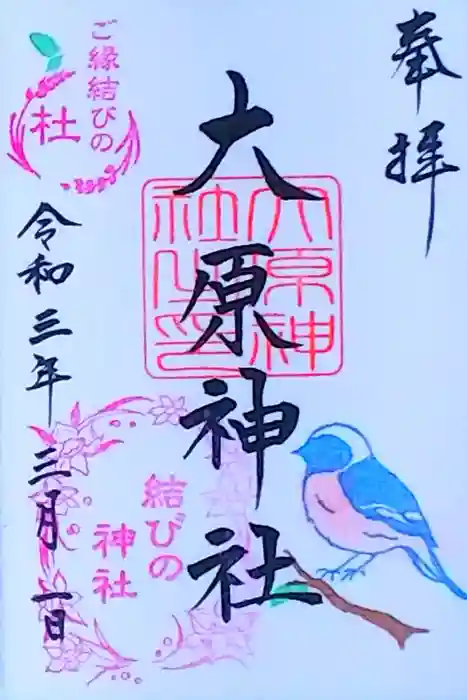 奉拝
大原神社
大原神社之印
ご縁結びの
杜
令和三年三月一日
結びの
神社